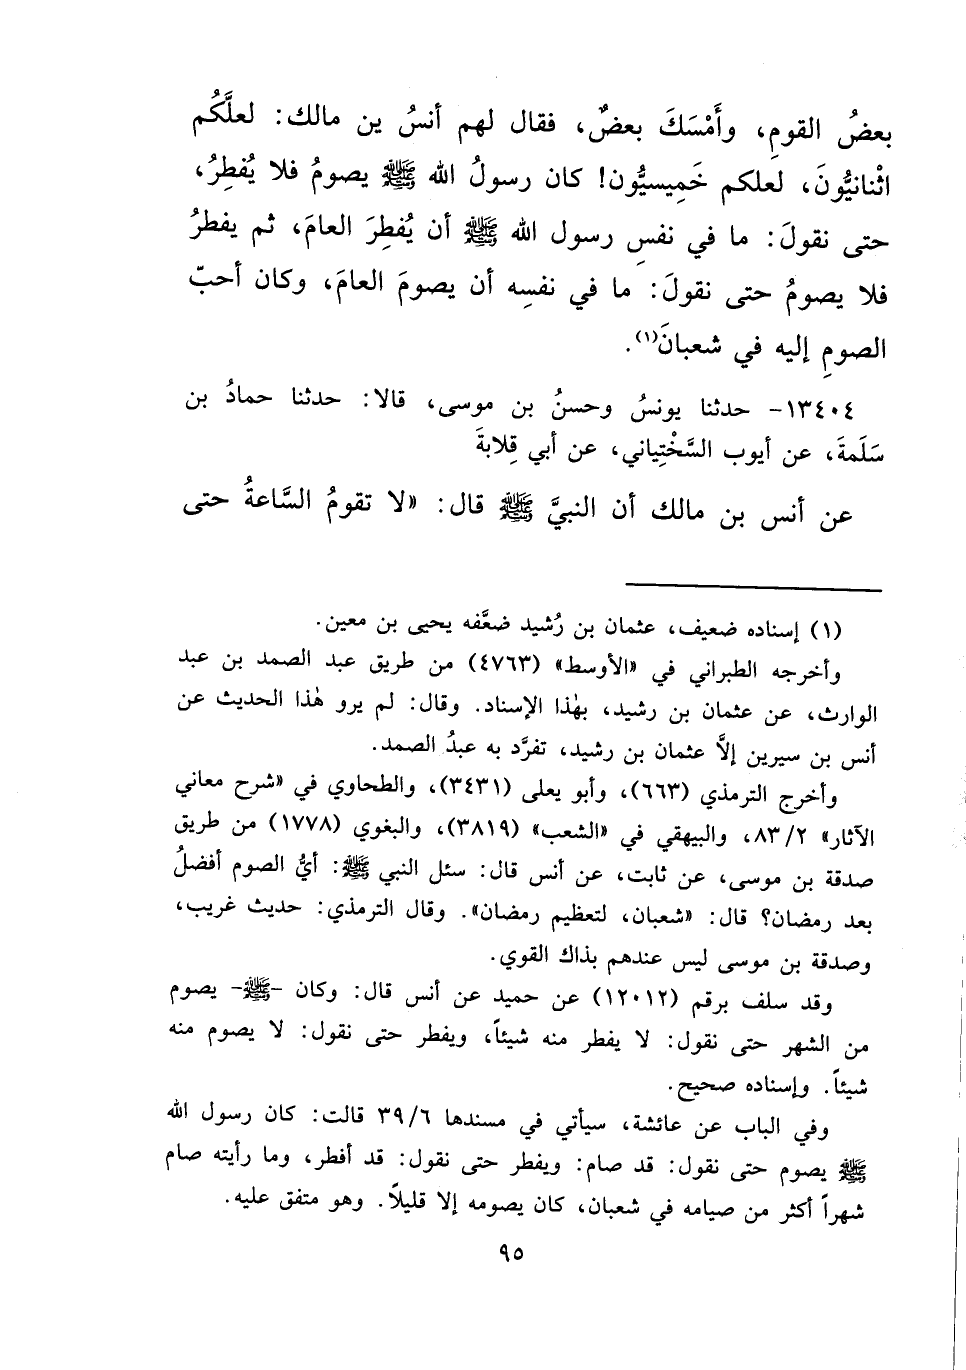 بعضُ القومِ، وأَمْسَكَ بعضٌ، فقال لهم أنسُ ين مالك: لعلَّكُم
اثْنانيُّونَ، لعلكم خَمِيسيُّون! كان رسولُ الله ﷺ يصومُ فلا يُفطِرُ،
حتى نقولَ: ما في نفسِ رسول الله ﷺ أن يُفطِرَ العامَ، ثم يفطرُ
فلا يصومُ حتى نقولَ: ما في نفسِه أن يصومَ العامَ، وكان أحبّ
الصومِ إليه في شعبانَ(١).
١٣٤٠٤- حدثنا يونسُ وحسنُ بن موسى، قالا: حدثنا حمادُ بن
سَلَمةَ، عن أيوب السَّخْتِياني، عن أبي قِلابةَ
عن أنس بن مالك أن النبيَّ ﷺ قال: «لا تقومُ السَّاعةُ حتى
(١) إسناده ضعيف، عثمان بن رُشيد ضعَّفه يحيى بن معين.
وأخرجه الطبراني في «الأوسط» (٤٧٦٣) من طريق عبد الصمد بن عبد
الوارث، عن عثمان بن رشيد، بهٰذا الإسناد. وقال: لم يرو هٰذا الحديث عن
أنس بن سيرين إلاَّ عثمان بن رشيد، تفرَّد به عبدُ الصمد.
وأخرج الترمذي (٦٦٣)، وأبو يعلى (٣٤٣١)، والطحاوي في «شرح معاني
الآثار» ٨٣/٢، والبيهقي في «الشعب» (٣٨١٩)، والبغوي (١٧٧٨) من طريق
صدقة بن موسى، عن ثابت، عن أنس قال: سئل النبي ﷺ: أيُّ الصوم أفضلُ
بعد رمضان؟ قال: «شعبان، لتعظيم رمضان». وقال الترمذي: حديث غريب،
وصدقة بن موسى ليس عندهم بذاك القوي.
وقد سلف برقم (١٢٠١٢) عن حميد عن أنس قال: وكان -ﷺ- يصوم
من الشهر حتى نقول: لا يفطر منه شيئاً، ويفطر حتى نقول: لا يصوم منه
شيئاً. وإسناده صحيح.
وفي الباب عن عائشة، سيأتي في مسندها ٣٩/٦ قالت: كان رسول الله
ﷺ يصوم حتى نقول: قد صام: ويفطر حتى نقول: قد أفطر، وما رأيته صام
شهراً أكثر من صيامه في شعبان، كان يصومه إلا قليلاً. وهو متفق عليه.
٩٥